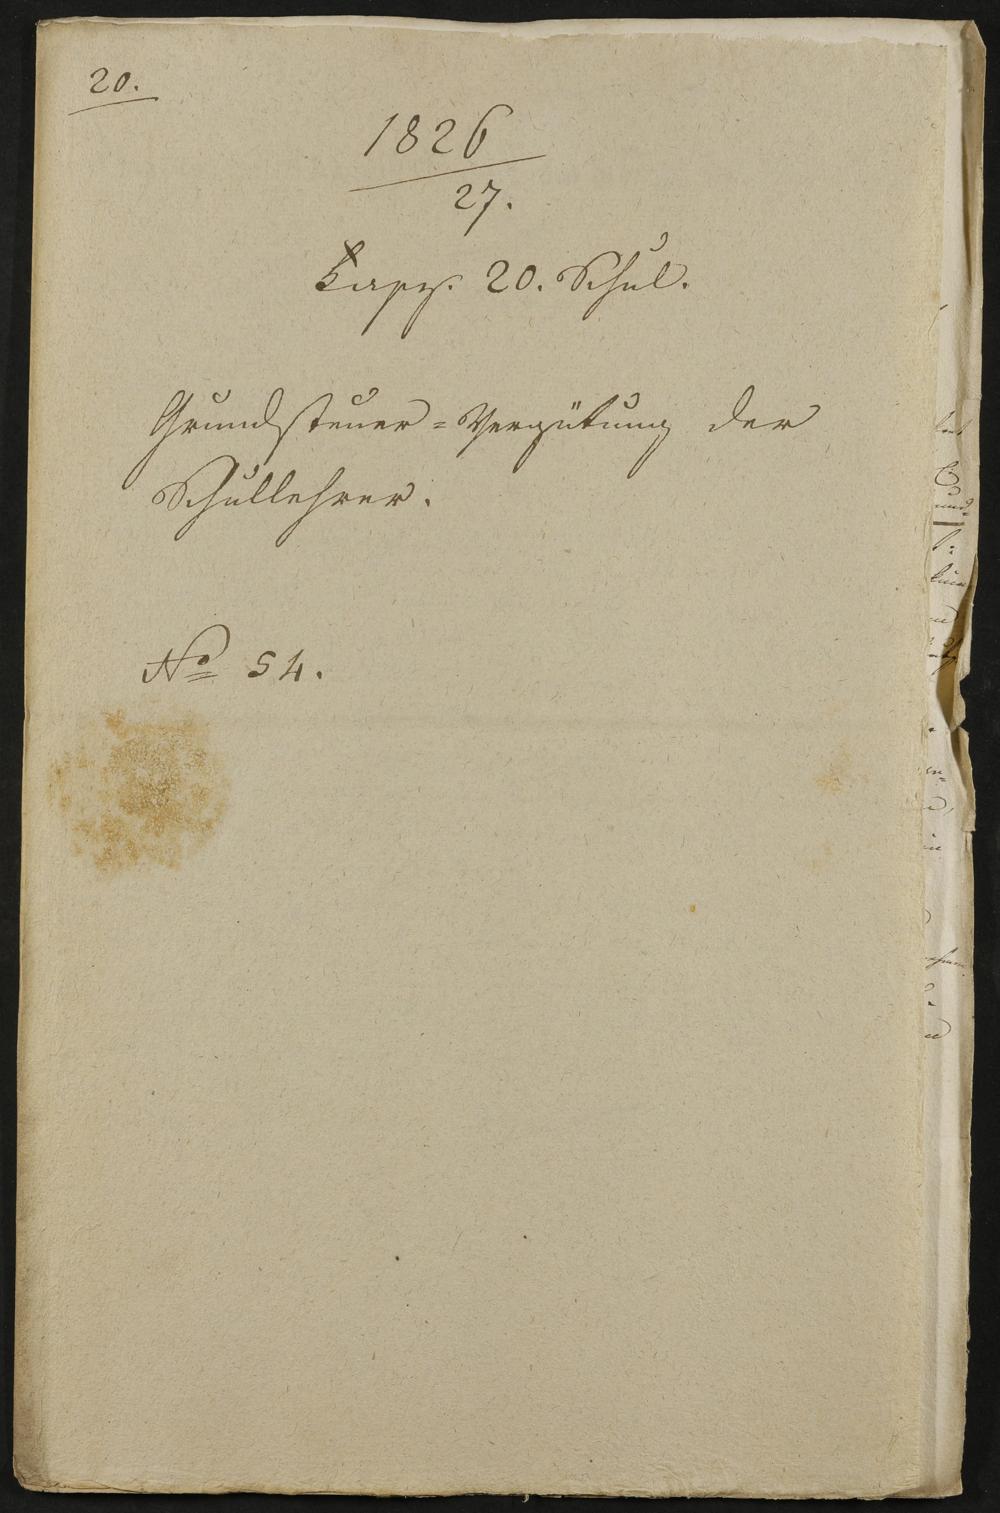 20.
1826
27.
Caps. 20. Schul.
Grundsteuer=Vergütung der
Schullehrer.
No 54.